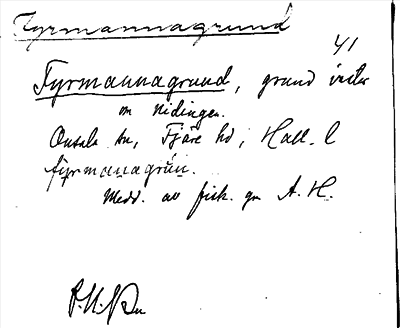 Fyrmannagrund
41
Fyrmannagrund, grund väster
om Nidingen.
Onsala sn, Fjäre hd, Hall. l
fyrmanagrún.
Medd. av fisk. gm A. H.